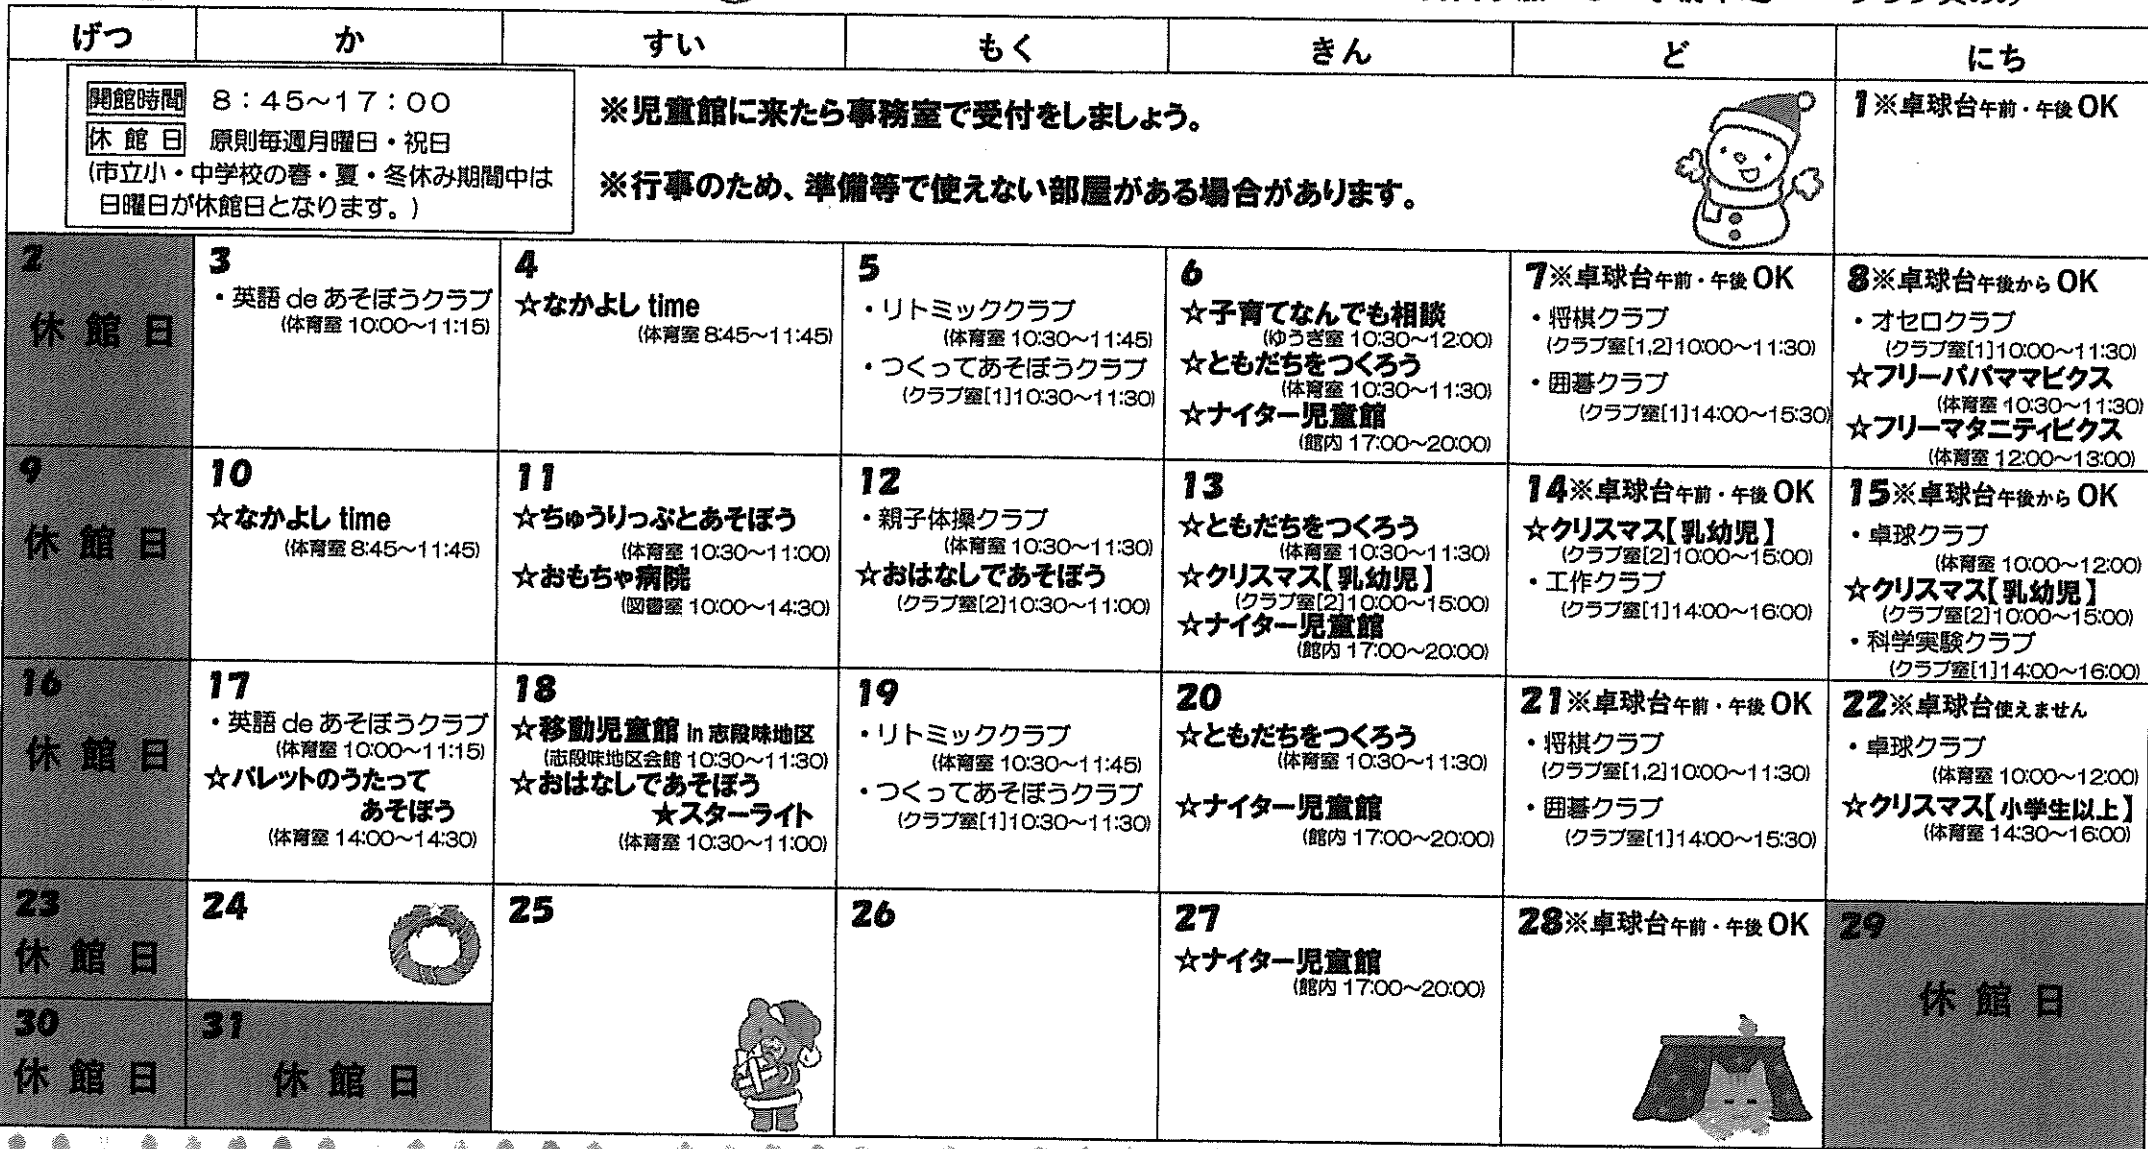 げつ か すい もく きん ど にち
開館時間 8：45～17：00
休館日 原則毎週月曜日・祝日
(市立小・中学校の春・夏・冬休み期間中は
日曜日が休館日となります。)
※児童館に来たら事務室で受付をしましょう。
※行事のため、準備等で使えない部屋がある場合があります。
1※卓球台午前・午後OK
2
休館日
3
・英語deあそぼうクラブ
(体育室10:00～11:15)
4
☆なかよしtime
(体育室8:45～11:45)
5
・リトミッククラブ
(体育室10:30～11:45)
・つくってあそぼうクラブ
(クラブ室[1]10:30～11:30)
6
☆子育てなんでも相談
(ゆうぎ室10:30～12:00)
☆ともだちをつくろう
(体育室10:30～11:30)
☆ナイター児童館
(館内17:00～20:00)
7※卓球台午前・午後OK
・将棋クラブ
(クラブ室[1,2]10:00～11:30)
・囲碁クラブ
(クラブ室[1]14:00～15:30)
8※卓球台午後からOK
・オセロクラブ
(クラブ室[1]10:00～11:30)
☆フリーパパママビクス
(体育室10:30～11:30)
☆フリーマタニティビクス
(体育室12:00～13:00)
9
休館日
10
☆なかよしtime
(体育室8:45～11:45)
11
☆ちゅうりっぷとあそぼう
(体育室10:30～11:00)
☆おもちゃ病院
(図書室10:00～14:30)
12
・親子体操クラブ
(体育室10:30～11:30)
☆おはなしであそぼう
(クラブ室[2]10:30～11:00)
13
☆ともだちをつくろう
(体育室10:30～11:30)
☆クリスマス【乳幼児】
(クラブ室[2]10:00～15:00)
☆ナイター児童館
(館内17:00～20:00)
14※卓球台午前・午後OK
☆クリスマス【乳幼児】
(クラブ室[2]10:00～15:00)
・工作クラブ
(クラブ室[1]14:00～16:00)
15※卓球台午後からOK
・卓球クラブ
(体育室10:00～12:00)
☆クリスマス【乳幼児】
(クラブ室[2]10:00～15:00)
・科学実験クラブ
(クラブ室[1]14:00～16:00)
16
休館日
17
・英語deあそぼうクラブ
(体育室10:00～11:15)
☆パレットのうたって
あそぼう
(体育室14:00～14:30)
18
☆移動児童館in志段味地区
(志段味地区会館10:30～11:30)
☆おはなしであそぼう
★スターライト
(体育室10:30～11:00)
19
・リトミッククラブ
(体育室10:30～11:45)
・つくってあそぼうクラブ
(クラブ室[1]10:30～11:30)
20
☆ともだちをつくろう
(体育室10:30～11:30)
☆ナイター児童館
(館内17:00～20:00)
21※卓球台午前・午後OK
・将棋クラブ
(クラブ室[1,2]10:00～11:30)
・囲碁クラブ
(クラブ室[1]14:00～15:30)
22※卓球台使えません
・卓球クラブ
(体育室10:00～12:00)
☆クリスマス【小学生以上】
(体育室14:30～16:00)
23
休館日
24
25
26
27
☆ナイター児童館
(館内17:00～20:00)
28※卓球台午前・午後OK
29
休館日
30
休館日
31
休館日